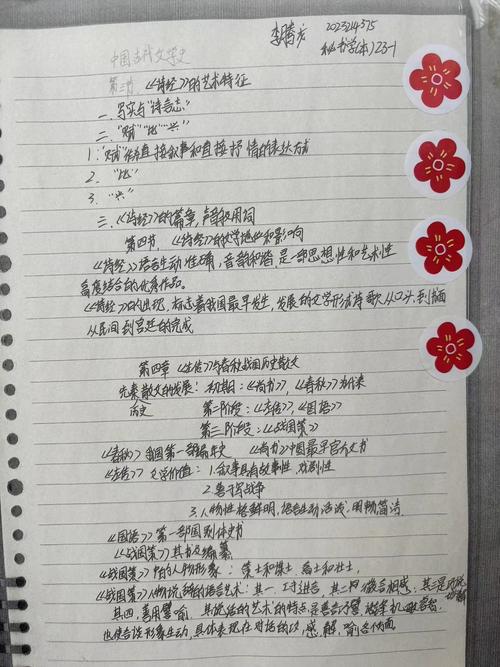 李腾龙 2023214575
秘书学(本)23-1
中国古代文学史
第三节 《诗经》的艺术特征
一、写实与"诗言志"
二、"赋""比""兴"
1."赋"直接叙事和直接抒情的表达方式
2. "比"
3. "兴"
三、《诗经》的篇章,声韵及用词
第四节、《诗经》的文学地位和影响
《诗经》语言生动准确,音韵和谐,是一部思想性和艺术性
高度结合的优秀作品。
《诗经》的出现,标志着我国最早发生,发展的文学形式诗歌从口头到书面
从民间到宫廷的完成
第四章《左传》与春秋战国历史散文
先秦散文的发展:初期:《尚书》,《春秋》为代表
历史 第一阶段:《左传》,《国语》
第二阶段:《战国策》
《春秋》我国第一部编年史 《尚书》中国最早官方文书
《左传》文学价值:1.叙事具有故事性,戏剧性
2.善于写战争
3.人物性格鲜明,语言生动活泼,明畅简洁
《国语》第一部国别体史书
《战国策》其书及编纂
《战国策》中的人物形象:策士和谋士 勇士和壮士,
《战国策》人物说辞的语言艺术:其一,巧于进言,其二 微言相感,其三是
其四,善用譬喻, 其说话的艺术的特点
也使言谈形象生动,具体表现在对话的 感,解,喻各方面